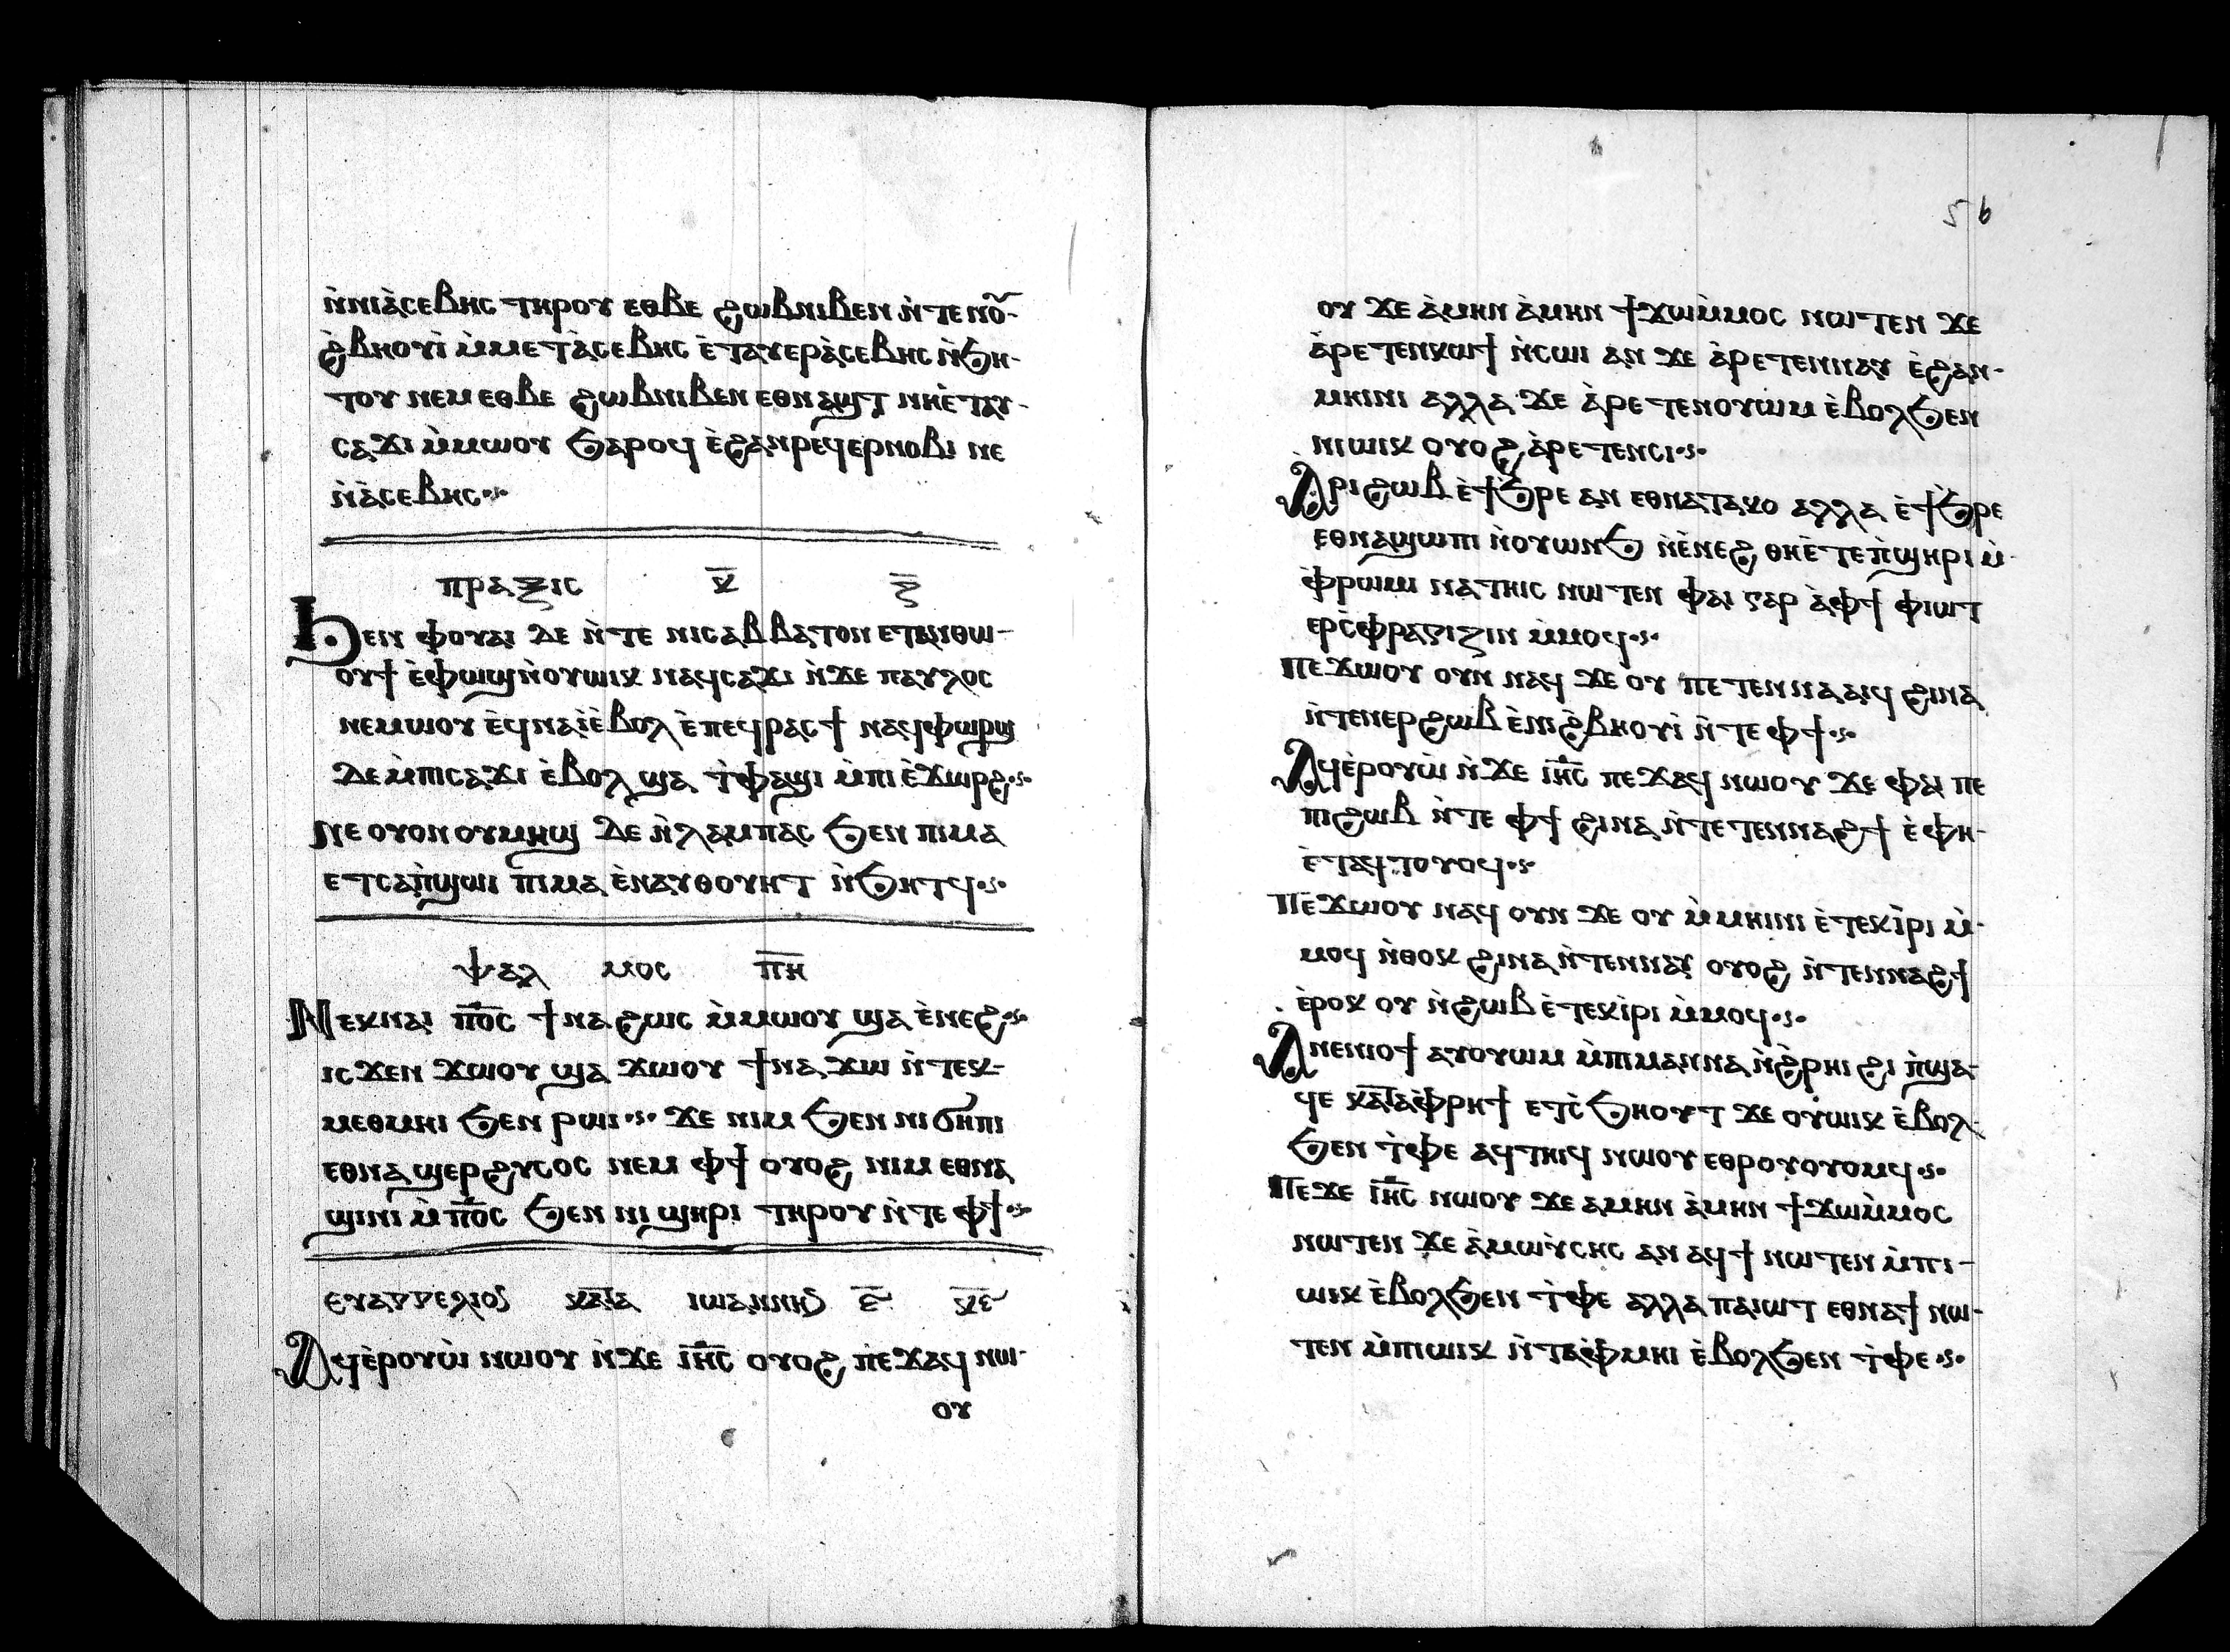 ⲛ̀ⲛⲓⲁ̀ⲥⲉⲃⲏⲥ ⲧⲏⲣⲟⲩ ⲉⲑⲃⲉ ϩⲱⲃⲛⲓⲃⲉⲛ ⲛ̀ⲧⲉ ⲛⲟ̃-
ϩ̀ⲃⲏⲟⲩⲓ̀ ⲙ̀ⲙⲉⲧⲁ̀ⲥⲉⲃⲏⲥ ⲉ̀ⲧⲁⲩⲉⲣⲁ̀ⲥⲉⲃⲏⲥ ⲛ̀ϧⲏ-
ⲧⲟⲩ ⲛⲉⲙ ⲉⲑⲃⲉ ϩⲱⲃⲛⲓⲃⲉⲛ ⲉⲑⲛⲁϣⲧ ⲛⲏⲉ̀ⲧⲁⲩ-
ⲥⲁϫⲓ ⲙ̀ⲙⲱⲟⲩ ϧⲁⲣⲟϥ ⲉ̀ϩⲁⲛⲣⲉϥⲉⲣⲛⲟⲃⲓ ⲛⲉ
ⲛ̀ⲁ̀ⲥⲉⲃⲏⲥ
ⲡⲣⲁⲝⲓⲥ ⲕ̅ ⲍ̅
ϧⲉⲛ ⲫⲟⲩⲁⲓ ⲇⲉ ⲛ̀ⲧⲉ ⲛⲓⲥⲁⲃⲃⲁⲧⲟⲛ ⲉⲧⲁⲛⲑⲱ-
ⲟⲩϯ ⲉ̀ⲫⲱϣⲛ̀ⲟⲩⲱⲓⲕ ⲛⲁϥⲥⲁϫⲓ ⲛ̀ϫⲉ ⲡⲁⲩⲗⲟⲥ
ⲛⲉⲙⲱⲟⲩ ⲉϥ̀ⲛⲁⲓ̀ⲉ̀ⲃⲟⲗ ⲉ̀ⲡⲉϥⲣⲁⲥϯ ⲛⲁϥⲫⲱⲣϣ
ⲇⲉ ⲙ̀ⲡⲓⲥⲁϫⲓ ⲉ̀ⲃⲟⲗ ϣⲁ ⲧ̀ⲫⲁϣⲓ ⲙ̀ⲡⲓ ⲉ̀ϫⲱⲣϩ
ⲛⲉ ⲟⲩⲟⲛ ⲟⲩⲙⲏϣ ⲇⲉ ⲛ̀ⲗⲁⲙⲡⲁⲥ ϧⲉⲛ ⲡⲓⲙⲁ
ⲉⲧⲥⲁⲡ̀ϣⲱⲓ ⲡⲓⲙⲁ ⲉ̀ⲛⲁⲩⲑⲟⲩⲏⲧ ⲛ̀ϧⲏⲧϥ
ⲯⲁⲗ ⲙⲟⲥ ⲡ̅ⲏ̅
ⲛⲉⲕⲛⲁⲓ ⲡ̅ⲟ̅ⲥ̅ ϯⲛⲁϩⲱⲥ ⲙ̀ⲙⲱⲟⲩ ϣⲁ ⲉ̀ⲛⲉϩ
ⲓⲥϫⲉⲛ ϫⲱⲟⲩ ϣⲁ ϫⲱⲟⲩ ϯⲛⲁϫⲱ ⲛ̀ⲧⲉⲕ-
ⲙⲉⲑⲙⲏⲓ ϧⲉⲛ ⲣⲱⲓ ϫⲉ ⲛⲓⲙ ϧⲉⲛ ⲛⲓ ϭⲏⲡⲓ
ⲉⲑⲛⲁϣⲉⲣϩⲩⲥⲟⲥ ⲛⲉⲙ ⲫϯ ⲟⲩⲟϩ ⲛⲓⲙ ⲉⲑⲛⲁ
ϣⲓⲛⲓ ⲙ̀ⲡ̅ⲟ̅ⲥ̅ ϧⲉⲛ ⲛⲓ ϣⲏⲣⲓ ⲧⲏⲣⲟⲩ ⲛ̀ⲧⲉ ⲫϯ
ⲉⲩⲁⲅⲅⲉⲗⲓⲟⲥ ⲕⲁⲧⲁ ⲓⲱⲁⲛⲛⲏⲥ ⲋ̅ ⲕ̅ⲋ̅
ⲁϥⲉ̀ⲣⲟⲩⲱ̀ ⲛⲱⲟⲩ ⲛ̀ϫⲉ ⲓ̅ⲏ̅ⲥ̅ ⲟⲩⲟϩ ⲡⲉ̀ϫⲁϥ ⲛⲱ-
ⲟⲩ
56
ⲟⲩ ϫⲉ ⲁ̀ⲙⲏⲛ ⲁ̀ⲙⲏⲛ ϯϫⲱⲙ̀ⲙⲟⲥ ⲛⲱⲧⲉⲛ ϫⲉ
ⲁ̀ⲣⲉⲧⲉⲛⲕⲱϯ ⲛ̀ⲥⲱⲓ ⲁⲛ ϫⲉ ⲁ̀ⲣⲉⲧⲉⲛⲛⲁⲩ ⲉ̀ϩⲁⲛ-
ⲙⲏⲓⲛⲓ ⲁⲗⲗⲁ ϫⲉ ⲁ̀ⲣⲉⲧⲉⲛⲟⲩⲱⲙ ⲉ̀ⲃⲟⲗϧⲉⲛ
ⲛⲓⲱⲓⲕ ⲟⲩⲟϩ ⲁ̀ⲣⲉⲧⲉⲛⲥⲓ
ⲁⲣⲓϩⲱⲃ ⲉ̀ϯϧ̀ⲣⲉ ⲁⲛ ⲉⲑⲛⲁⲧⲁⲕⲟ ⲁⲗⲗⲁ ⲉ̀ϯϧ̀ⲣⲉ
ⲉⲑⲛⲁϣⲱⲡⲓ ⲛ̀ⲟⲩⲱⲛϧ ⲛ̀ⲉ̀ⲛⲉϩ ⲑⲏⲉ̀ⲧⲉⲡ̀ϣⲏⲣⲓ ⲙ̀-
ⲫ̀ⲣⲱⲙⲓ ⲛⲁⲧⲏⲓⲥ ⲛⲱⲧⲉⲛ ⲫⲁⲓ ⲅⲁⲣ ⲁ̀ⲫϯ ⲫⲓⲱⲧ
ⲉⲣⲥ̀ⲫⲣⲁⲅⲓⲍⲓⲛ ⲙ̀ⲙⲟϥ
ⲡⲉϫⲱⲟⲩ ⲟⲩⲛ ⲛⲁϥ ϫⲉ ⲟⲩ ⲡⲉⲧⲉⲛⲛⲁⲁⲓϥ ϩⲓⲛⲁ
ⲛ̀ⲧⲉⲛⲉⲣϩⲱⲃ ⲉ̀ⲛⲓϩ̀ⲃⲏⲟⲩⲓ̀ ⲛ̀ⲧⲉ ⲫϯ
ⲁϥⲉ̀ⲣⲟⲩⲱ̀ ⲛ̀ϫⲉ ⲓ̅ⲏ̅ⲥ̅ ⲡⲉϫⲁϥ ⲛⲱⲟⲩ ϫⲉ ⲫⲁⲓ ⲡⲉ
ⲡⲓϩⲱⲃ ⲛ̀ⲧⲉ ⲫϯ ϩⲓⲛⲁ ⲛ̀ⲧⲉⲧⲉⲛⲛⲁϩϯ ⲉ̀ⲫⲏ-
ⲉ̀ⲧⲁϥⲧⲟⲩⲟϥ
ⲡⲉ̀ϫⲱⲟⲩ ⲛⲁϥ ⲟⲩⲛ ϫⲉ ⲟⲩ ⲙ̀ⲙⲏⲓⲛⲓ ⲉ̀ⲧⲉⲕⲓ̀ⲣⲓ ⲙ̀-
ⲙⲟϥ ⲛ̀ⲑⲟⲕ ϩⲓⲛⲁ ⲛ̀ⲧⲉⲛⲛⲁⲩ ⲟⲩⲟϩ ⲛ̀ⲧⲉⲛⲛⲁϩϯ
ⲉ̀ⲣⲟⲕ ⲟⲩ ⲛ̀ϩⲱⲃ ⲉ̀ⲧⲉⲕⲓ̀ⲣⲓ ⲙ̀ⲙⲟϥ
ⲁⲛⲉⲛⲓⲟϯ ⲁⲩⲟⲩⲱⲙ ⲙ̀ⲡⲓⲙⲁⲛⲛⲁ ⲛ̀ϩ̀ⲣⲏⲓ ϩⲓ ⲡ̀ϣⲁ-
ϥⲉ ⲕⲁⲧⲁⲫ̀ⲣⲏϯ ⲉⲧⲥ̀ϧⲏⲟⲩⲧ ϫⲉ ⲟⲩⲱⲓⲕ ⲉ̀ⲃⲟⲗ-
ϧⲉⲛ ⲧ̀ⲫⲉ ⲁϥⲧⲏⲓϥ ⲛⲱⲟⲩ ⲉⲑⲣⲟⲩⲟⲩⲟⲙϥ
ⲡⲉϫⲉ ⲓ̅ⲏ̅ⲥ̅ ⲛⲱⲟⲩ ϫⲉ ⲁⲙⲏⲛ ⲁ̀ⲙⲏⲛ ϯϫⲱⲙ̀ⲙⲟⲥ
ⲛⲱⲧⲉⲛ ϫⲉ ⲁ̀ⲙⲱⲩ̀ⲥⲏⲥ ⲁⲛ ⲁϥϯ ⲛⲱⲧⲉⲛ ⲙ̀ⲡⲓ-
ⲱⲓⲕ ⲉ̀ⲃⲟⲗϧⲉⲛ ⲧ̀ⲫⲉ ⲁⲗⲗⲁ ⲡⲁⲓⲱⲧ ⲉⲑⲛⲁϯ ⲛⲱ-
ⲧⲉⲛ ⲙ̀ⲡⲓⲱⲓⲕ ⲛ̀ⲧⲁⲫ̀ⲙⲏⲓ ⲉ̀ⲃⲟⲗϧⲉⲛ ⲧ̀ⲫⲉ